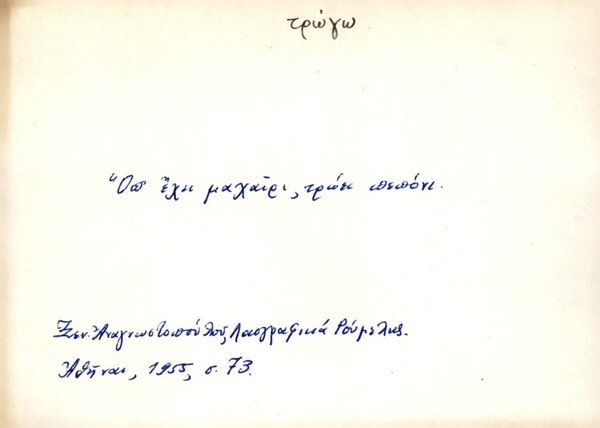 τρώγω
Ὅπ' ἔχει μαχαῖρι, τρώει πεπόνι.
Ξεν. Ἀναγνωστοπούλου, Λαογραφικά Ρούμελης.
Ἀθῆναι, 1955, σ. 73.